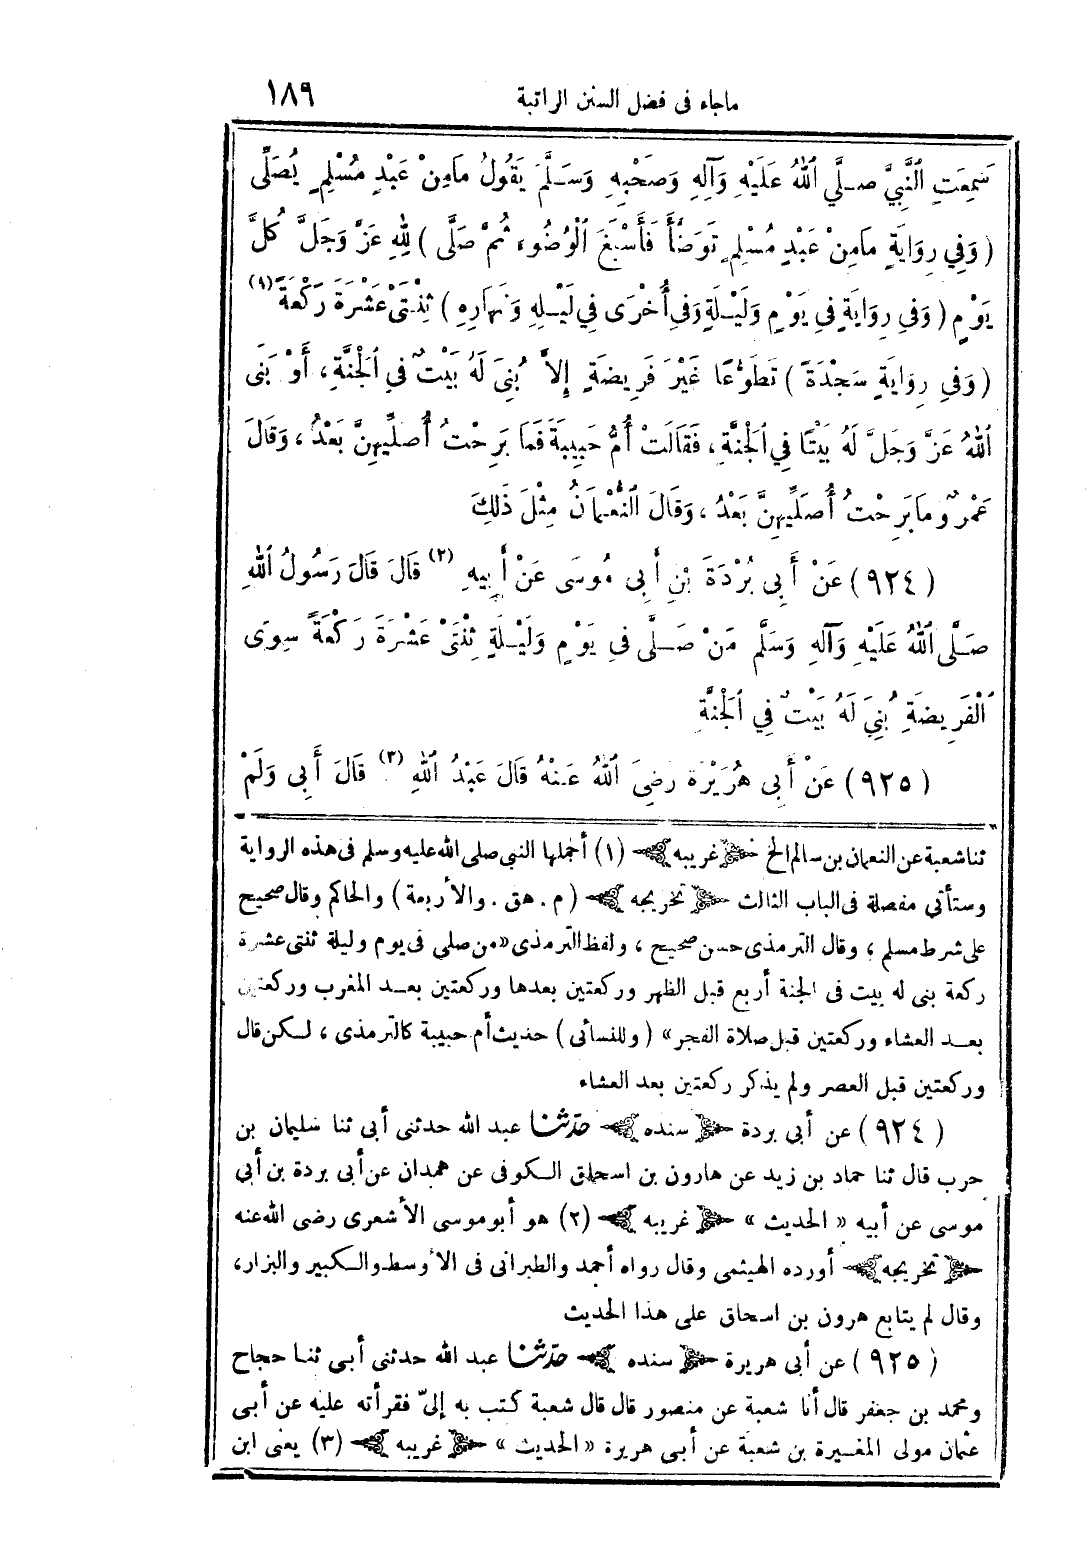 ماجاء فى فضل السنن الراتبة ١٨٩
سَمِعَتِ ٱلنَّبِيَّ صَلَّي ٱللهُ عَلَيْهِ وَآلِهِ وَصَحْبِهِ وَسَلَّمَ يَقُولُ مَامِنْ عَبْدٍ مُسْلِمٍ يُصَلِّى
( وَفِي رِوَايَةٍ مَامِنْ عَبْدٍ مُسْلِمٍ تَوَضَّأَ فَأَسْبَغَ ٱلْوُضُوءَ ثُمَّ صَلَّى ) لِلهِ عَزَّ وَجَلَّ كُلَّ
يَوْمٍ ( وَفِي رِوَايَةٍ فِي يَوْمٍ وَلَيْلَةٍ وَفِي أُخْرَى فِي لَيْلِهِ وَنَهَارِهِ ) ثِنْتَىْ عَشْرَةَ رَكْعَةً (١)
( وَفِي رِوَايَةٍ سَجْدَةً ) تَطَوُّعًا غَيْرَ فَرِيضَةٍ إِلاَّ بُنِيَ لَهُ بَيْتٌ فِي ٱلْجَنَّةِ، أَوْ بَنَى
ٱللهُ عَزَّ وَجَلَّ لَهُ بَيْتًا فِي ٱلْجَنَّةِ، فَقَالَتْ أُمُّ حَبِيبَةَ فَمَا بَرِحْتُ أُصَلِّيهِنَّ بَعْدُ، وَقَالَ
عَمْرٌو مَا بَرِحْتُ أُصَلِّيهِنَّ بَعْدُ، وَقَالَ ٱلنُّعْمَانُ مِثْلَ ذَلِكَ
( ٩٢٤ ) عَنْ أَبِى بُرْدَةَ بْنِ أَبِى مُوسَى عَنْ أَبِيهِ (٢) قَالَ قَالَ رَسُولُ ٱللهِ
صَلَّى ٱللهُ عَلَيْهِ وَآلِهِ وَسَلَّمَ مَنْ صَلَّى فِي يَوْمٍ وَلَيْلَةٍ ثِنْتَىْ عَشْرَةَ رَكْعَةً سِوَى
ٱلْفَرِيضَةِ بُنِيَ لَهُ بَيْتٌ فِي ٱلْجَنَّةِ
( ٩٢٥ ) عَنْ أَبِى هُرَيْرَةَ رَضِيَ ٱللهُ عَنْهُ قَالَ عَبْدُ ٱللهِ (٣) قَالَ أَبِى وَلَمْ
ثنا شعبة عن النعمان بن سالم الخ ﴿غريبه﴾ (١) أجملها النبي صلى الله عليه وسلم فى هذه الرواية
وستأتي مفصلة فى الباب الثالث ﴿تخريجه﴾ ( م . هق . والأربعة ) والحاكم وقال صحيح
على شرط مسلم ، وقال الترمذى حسن صحيح ، ولفظ الترمذى «من صلى فى يوم وليلة ثنتى عشرة
ركعة بنى له بيت فى الجنة أربع قبل الظهر وركعتين بعدها وركعتين بعد المغرب وركعتين
بعد العشاء وركعتين قبل صلاة الفجر» ( وللنسائى ) حديث أم حبيبة كالترمذى ، لكن قال
وركعتين قبل العصر ولم يذكر ركعتين بعد العشاء
( ٩٢٤ ) عن أبي بردة ﴿سنده﴾ حدثنا عبد الله حدثنى أبى ثنا سليمان بن
حرب قال ثنا حماد بن زيد عن هارون بن اسحاق الكوفى عن همدان عن أبى بردة بن أبي
موسى عن أبيه « الحديث » ﴿غريبه﴾ (٢) هو أبو موسى الأشعرى رضى الله عنه
﴿تخريجه﴾ أورده الهيثمى وقال رواه أحمد والطبرانى فى الأوسط والكبير والبزار،
وقال لم يتابع هرون بن اسحاق على هذا الحديث
( ٩٢٥ ) عن أبى هريرة ﴿سنده﴾ حدثنا عبد الله حدثنى أبى ثنا حجاج
ومحمد بن جعفر قال أنا شعبة عن منصور قال قال شعبة كتب به إلىّ فقرأته عليه عن أبى
عثمان مولى المغيرة بن شعبة عن أبى هريرة « الحديث » ﴿غريبه﴾ (٣) يعنى ابن